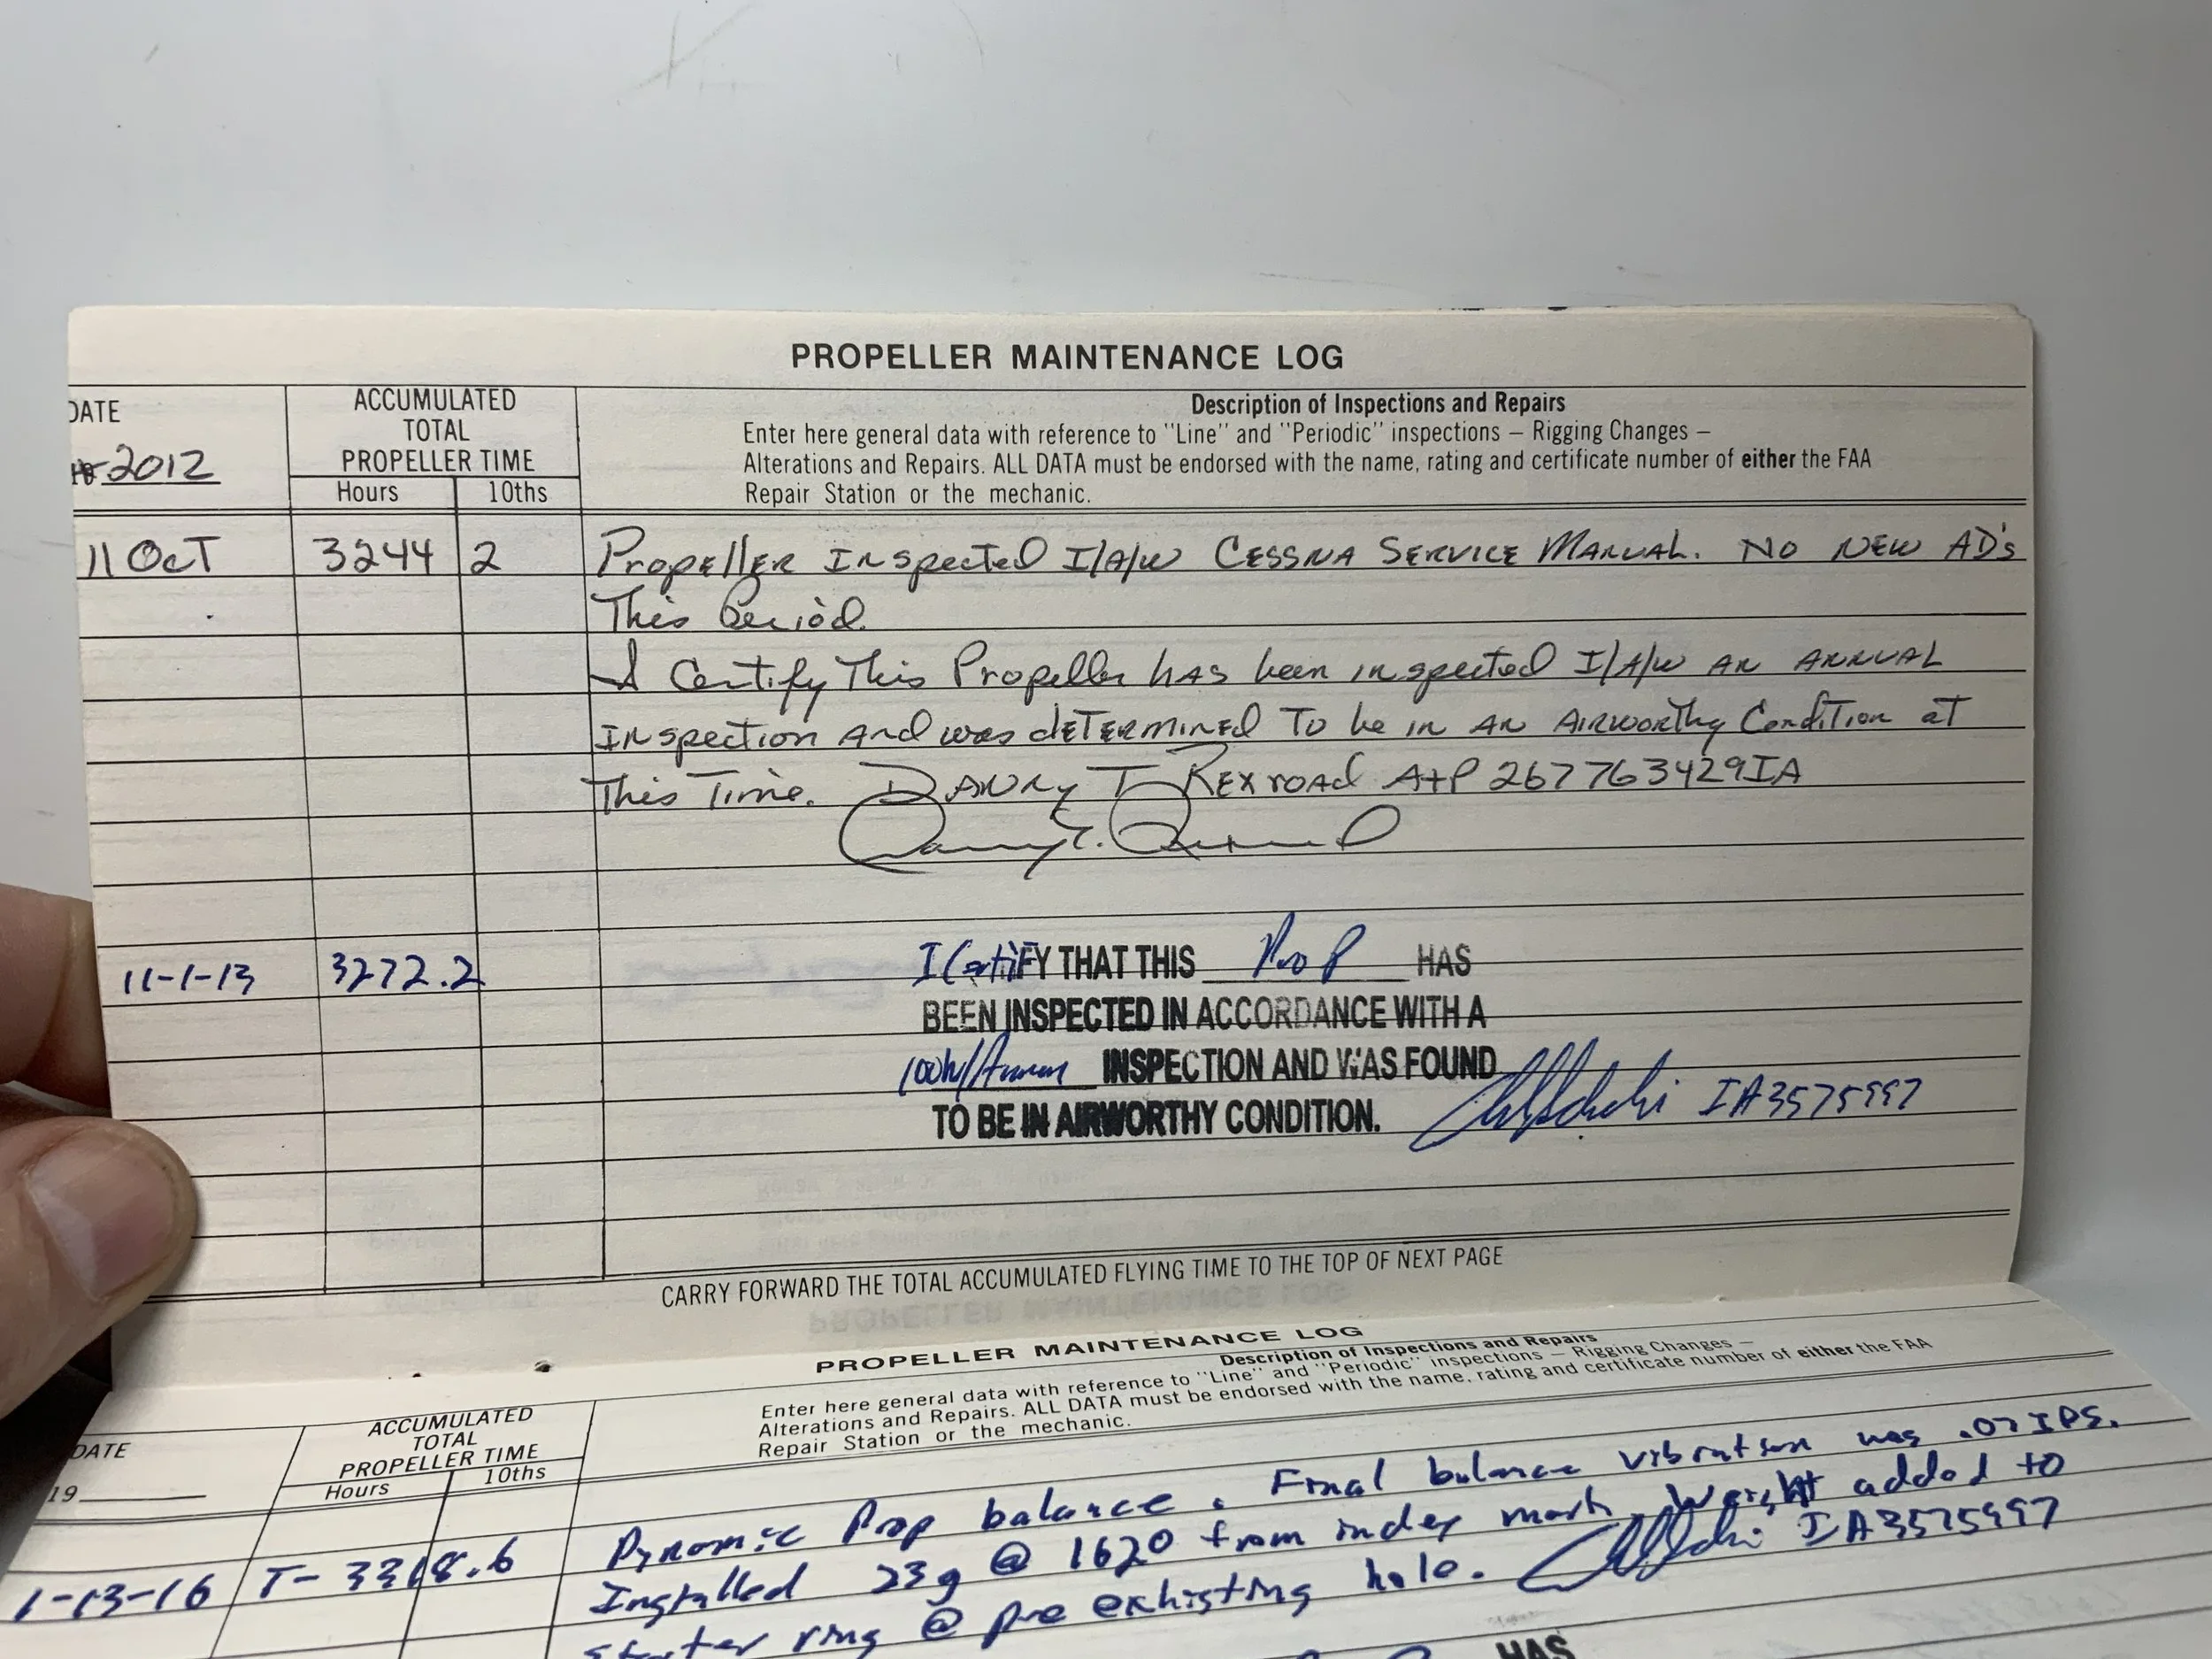 PROPELLER MAINTENANCE LOG
DATE
2012
ACCUMULATED
TOTAL
PROPELLER TIME
Hours 10ths
Description of Inspections and Repairs
Enter here general data with reference to "Line" and "Periodic" inspections — Rigging Changes —
Alterations and Repairs. ALL DATA must be endorsed with the name, rating and certificate number of either the FAA
Repair Station or the mechanic.
11 Oct 3244 2 Propeller Inspected I/A/W CESSNA SERVICE MANUAL. NO NEW AD's
This Period.
I Certify This Propeller has been inspected I/A/W AN ANNUAL
Inspection And was determined To be in AN Airworthy Condition at
This Time. Danny T Rexroad A+P 267763429IA
11-1-13 3272.2 I CertiFY THAT THIS Prop HAS
BEEN INSPECTED IN ACCORDANCE WITH A
100hr/Annual INSPECTION AND WAS FOUND
TO BE IN AIRWORTHY CONDITION. IA3575997
CARRY FORWARD THE TOTAL ACCUMULATED FLYING TIME TO THE TOP OF NEXT PAGE
PROPELLER MAINTENANCE LOG
DATE
19
ACCUMULATED
TOTAL
PROPELLER TIME
Hours 10ths
Description of Inspections and Repairs
Enter here general data with reference to "Line" and "Periodic" inspections — Rigging Changes —
Alterations and Repairs. ALL DATA must be endorsed with the name, rating and certificate number of either the FAA
Repair Station or the mechanic.
1-13-16 T- 3318.6 Dynamic Prop balance. Final balance vibration was .07 IPS.
Installed 23g @ 1620 from index mark. Weight added to
starter ring @ pre exhisting hole. IA3575997
HAS